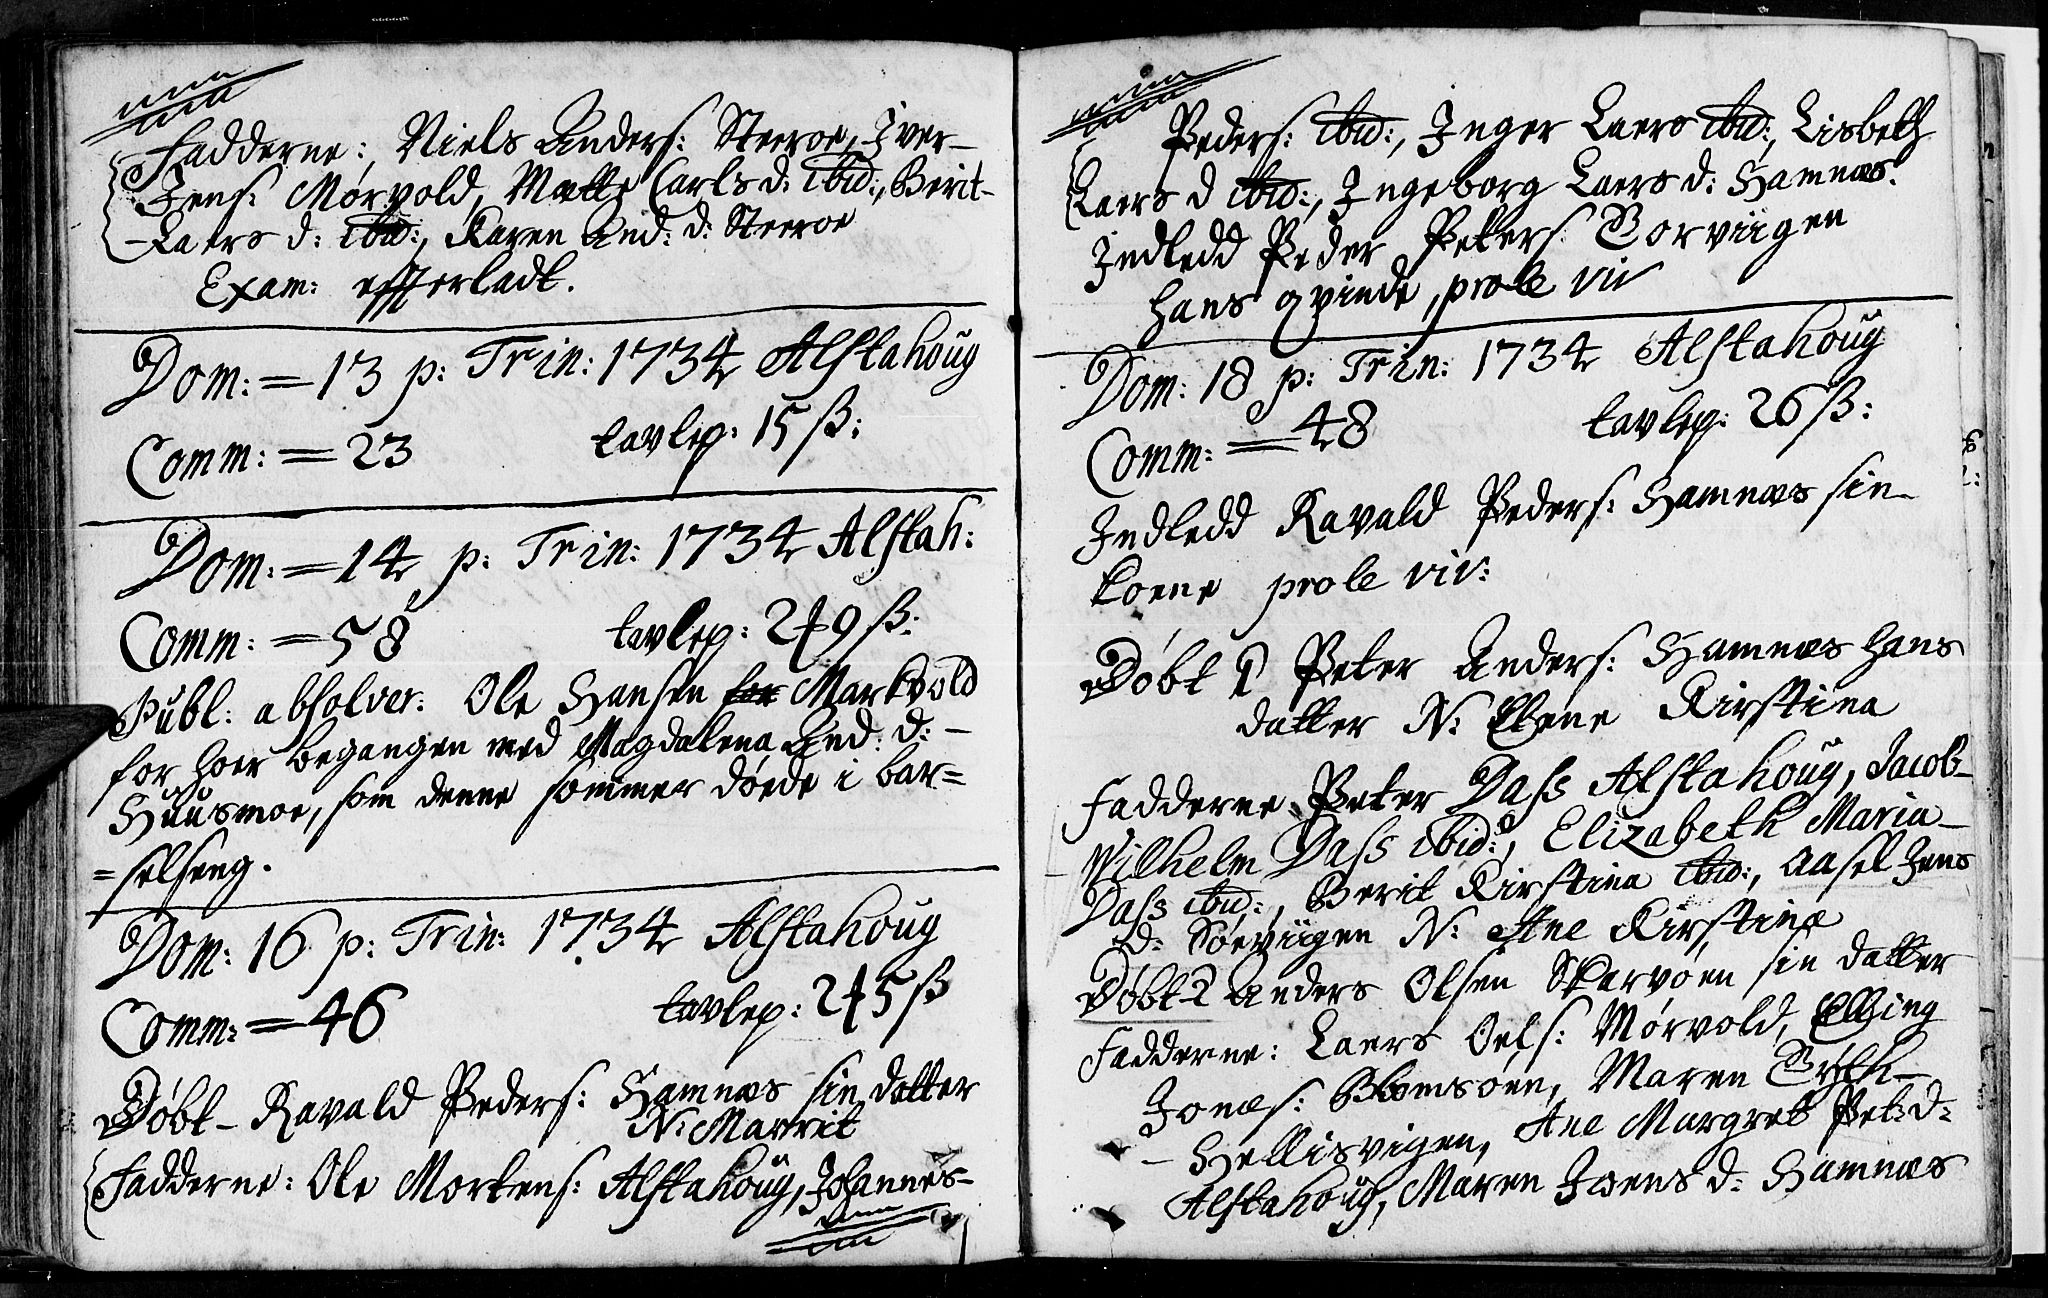 Fadderne: Niels Anders: Steeroe, Iver-
Jens: Mørvold, Mætte Carls d: ibid:, Berit-
-Laers d: ibid:, Karen And: d: Steeroe
Exam: efterladt.
Dom: = 13 p: Trin: 1734 Alstahoug
Comm: = 23 tavlep: 15 ß:
Dom: = 14 p: Trin: 1734 Alstah:
Comm: = 58 tavlep: 2 ƒ 9 ß:
Publ: absolver: Ole Hansen for Markvold
for hoer begangen med Magdalena And: d: -
Huusmoe, som denne sommer døede i bar=
=selseng.
Dom: 16 p: Trin: 1734 Alstahoug
Comm: = 46 tavlep: 2 ƒ 5 ß
Døbt - Ravald Peders: Hamnæs sin datter
N: Marrit
Fadderne: Ole Mortens: Alstahoug, Johannes-
Peders: ibid:, Inger Laers ibid:, Lisbeth
Laers d ibid:, Ingeborg Laers d: Hamnæs.
Indledd Peder Peters: Torviigen
hans qvinde, prole viv
Dom: 18 p: Trin: 1734 Alstahoug
Comm: = 48 tavlep: 26 ß:
Indledd Ravald Peders: Hamnæs sin
koene prole viv:
Døbt 1 Peter Anders: Hamnæs hans
datter N: Elene Kirstina
Fadderne Peter Dass Alstahoug, Jacob-
Wilhelm Dass ibid:, Elizabeth Maria-
Dass ibid:, Berit Kirstina ibid:, Aasel Jens
d: Sørviigen N: Ane Kirstina
Døbt 2 Anders Olsen Skarvøen sin datter
Fadderne: Laers Oels: Mørvold, Elling
Jonæs: Blomsøen, Maren
- Hellisvigen, Ane Margret Pet: d:
Alstahoug, Maren Joens d: Hamnæs